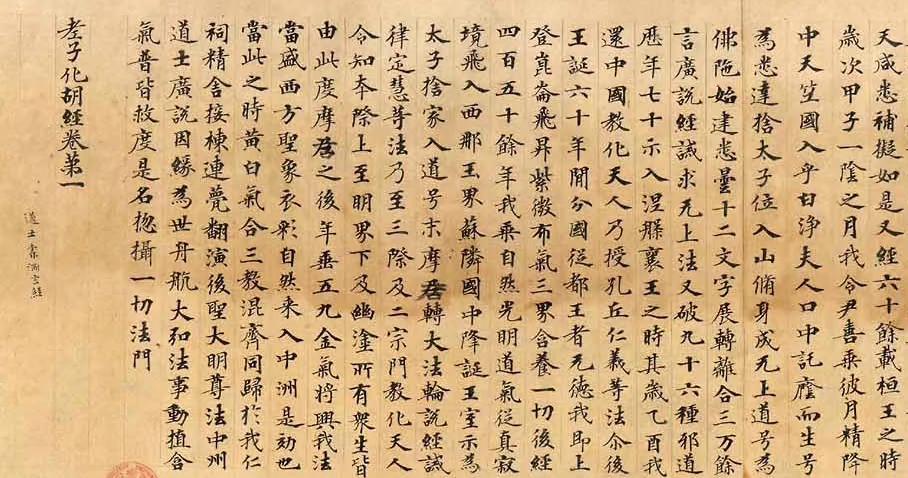 天咸悉補擬如是又經六十餘載桓王之時
歲次甲子一陰之月我令尹喜乘彼月精降
中天笁國入乎白淨夫人口中託廕而生号
為悉達捨太子位入山脩身成无上道号為
佛陁始建悉曇十二文字展轉離合三万餘
言廣說經誡求无上法又破九十六種邪道
歷年七十示入涅槃襄王之時其歲乙酉我
還中國教化天人乃授孔丘仁義等法尒後
王誕六十年閒分國從都王者无德我即上
登崑崙飛昇紫微布氣三界含養一切後經
四百五十餘年我乘自然光明道氣從真寂
境飛入西那玉界蘇隣國中降誕王室示為
太子捨家入道号末摩尼轉大法輪說經誡
律定慧等法乃至三際及二宗門教化天人
令知本際上至明界下及幽塗所有衆生皆
由此度摩尼之後年垂五九金氣將興我法
當盛西方聖象衣彩自然来入中洲是効也
當此之時黃白氣合三教混齊同歸於我仁
祠精舍接棟連甍翻演後聖大明尊法中州
道士廣說因緣為世舟航大弘法事動植含
氣普皆救度是名惣攝一切法門
老子化胡經卷第一
道士索洞玄經